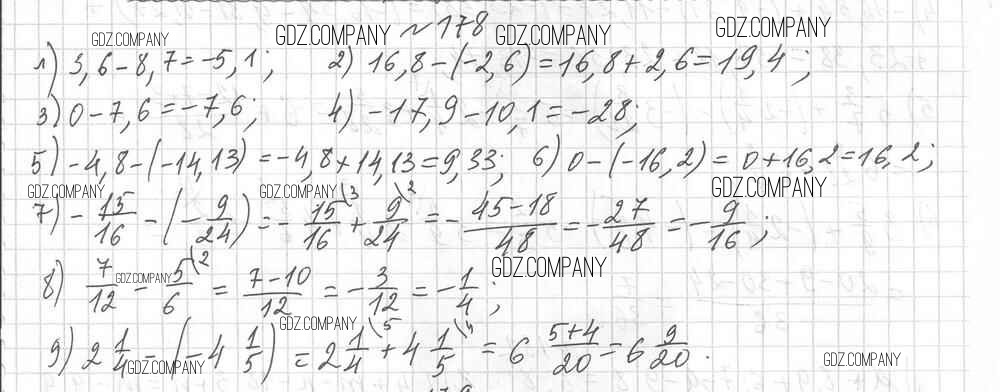 №178
1) 3,6-8,7=-5,1; 2) 16,8-(-2,6)=16,8+2,6=19,4;
3) 0-7,6=-7,6; 4) -17,9-10,1=-28;
5) -4,8-(-14,13)=-4,8+14,13=9,33; 6) 0-(-16,2)=0+16,2=16,2;
7) -15/16-(-9/24)=-15/16\3+9/24\2=-(45-18)/48=-27/48=-9/16;
8) 7/12-5/6\2=(7-10)/12=-3/12=-1/4;
9) 2 1/4-(-4 1/5)=2 1/4\5+4 1/5\4=6 (5+4)/20=6 9/20.
GDZ.COMPANY
GDZ.COMPANY
GDZ.COMPANY
GDZ.COMPANY
GDZ.COMPANY
GDZ.COMPANY
GDZ.COMPANY
GDZ.COMPANY
GDZ.COMPANY
GDZ.COMPANY
GDZ.COMPANY
GDZ.COMPANY